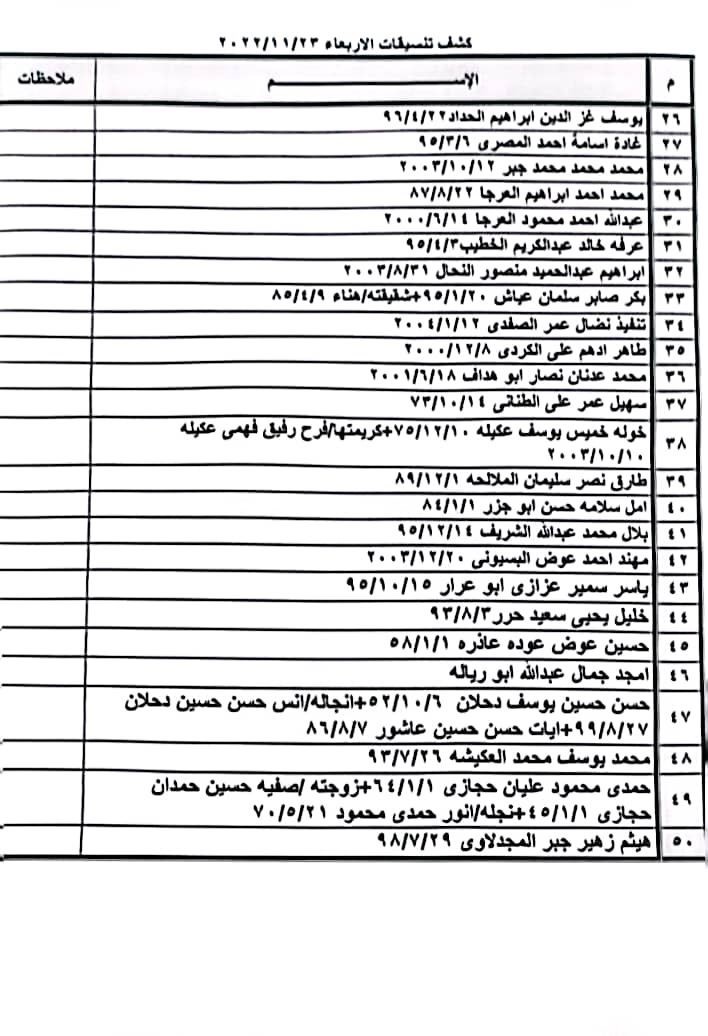 كشف تنسيقات الاربعاء ٢٠٢٢/١١/٢٣
م الاســـــــــــــــــــــم ملاحظات
٢٦ يوسف عز الدين ابراهيم الحداد٩٦/٤/٢٢
٢٧ غادة اسامة احمد المصرى ٩٥/٣/٦
٢٨ محمد محمد محمد جبر ٢٠٠٣/١٠/١٢
٢٩ محمد احمد ابراهيم العرجا ٨٧/٨/٢٢
٣٠ عبدالله احمد محمود العرجا ٢٠٠٠/٦/١٤
٣١ عرفه خالد عبدالكريم الخطيب٩٥/٤/٣
٣٢ ابراهيم عبدالحميد منصور النحال ٢٠٠٣/٨/٣١
٣٣ بكر صابر سلمان عياش ٩٥/١/٢٠+شقيقته/هناء ٨٥/٤/٩
٣٤ تنفيذ نضال عمر الصفدى ٢٠٠٤/١/١٢
٣٥ طاهر ادهم على الكردى ٢٠٠٠/١٢/٨
٣٦ محمد عدنان نصار ابو هداف ٢٠٠١/٦/١٨
٣٧ سهيل عمر على الطنانى ٧٣/١٠/١٤
٣٨ خوله خميس يوسف عكيله ٧٥/١٢/١٠+كريمتها/فرح رفيق فهمى عكيله
٢٠٠٣/١٠/١٠
٣٩ طارق نصر سليمان الملالحه ٨٩/١٢/١
٤٠ امل سلامه حسن ابو جزر ٨٤/١/١
٤١ بلال محمد عبدالله الشريف ٩٥/١٢/١٤
٤٢ مهند احمد عوض البسيونى ٢٠٠٣/١٢/٢٠
٤٣ ياسر سمير عزازى ابو عرار ٩٥/١٠/١٥
٤٤ خليل يحيى سعيد حرر٩٣/٨/٣
٤٥ حسين عوض عوده عاذره ٥٨/١/١
٤٦ امجد جمال عبدالله ابو رياله
٤٧ حسن حسين يوسف دحلان ٥٢/١٠/٦+انجاله/انس حسن حسين دحلان
٩٩/٨/٢٧+ايات حسن حسين عاشور ٨٦/٨/٧
٤٨ محمد يوسف محمد العكيشه ٩٣/٧/٢٦
٤٩ حمدى محمود عليان حجازى ٦٤/١/١+زوجته /صفيه حسين حمدان
حجازى ٤٥/١/١+نجله/انور حمدى محمود ٧٠/٥/٢١
٥٠ هيثم زهير جبر المجدلاوى ٩٨/٧/٢٩